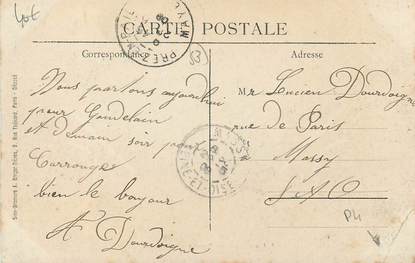 40€
CARTE POSTALE
Correspondance
Adresse
53
Nous partons aujourdhui
pour Goudelain
et demain soir pour
Carrouge
bien le bonjour
A Dourdoigne
Mr Lucien Dourdoigne
rue de Paris
à Massy
S & O
P4
PRÉ-EN-PAIL
MAYENNE
MASSY
SEINE-ET-OISE